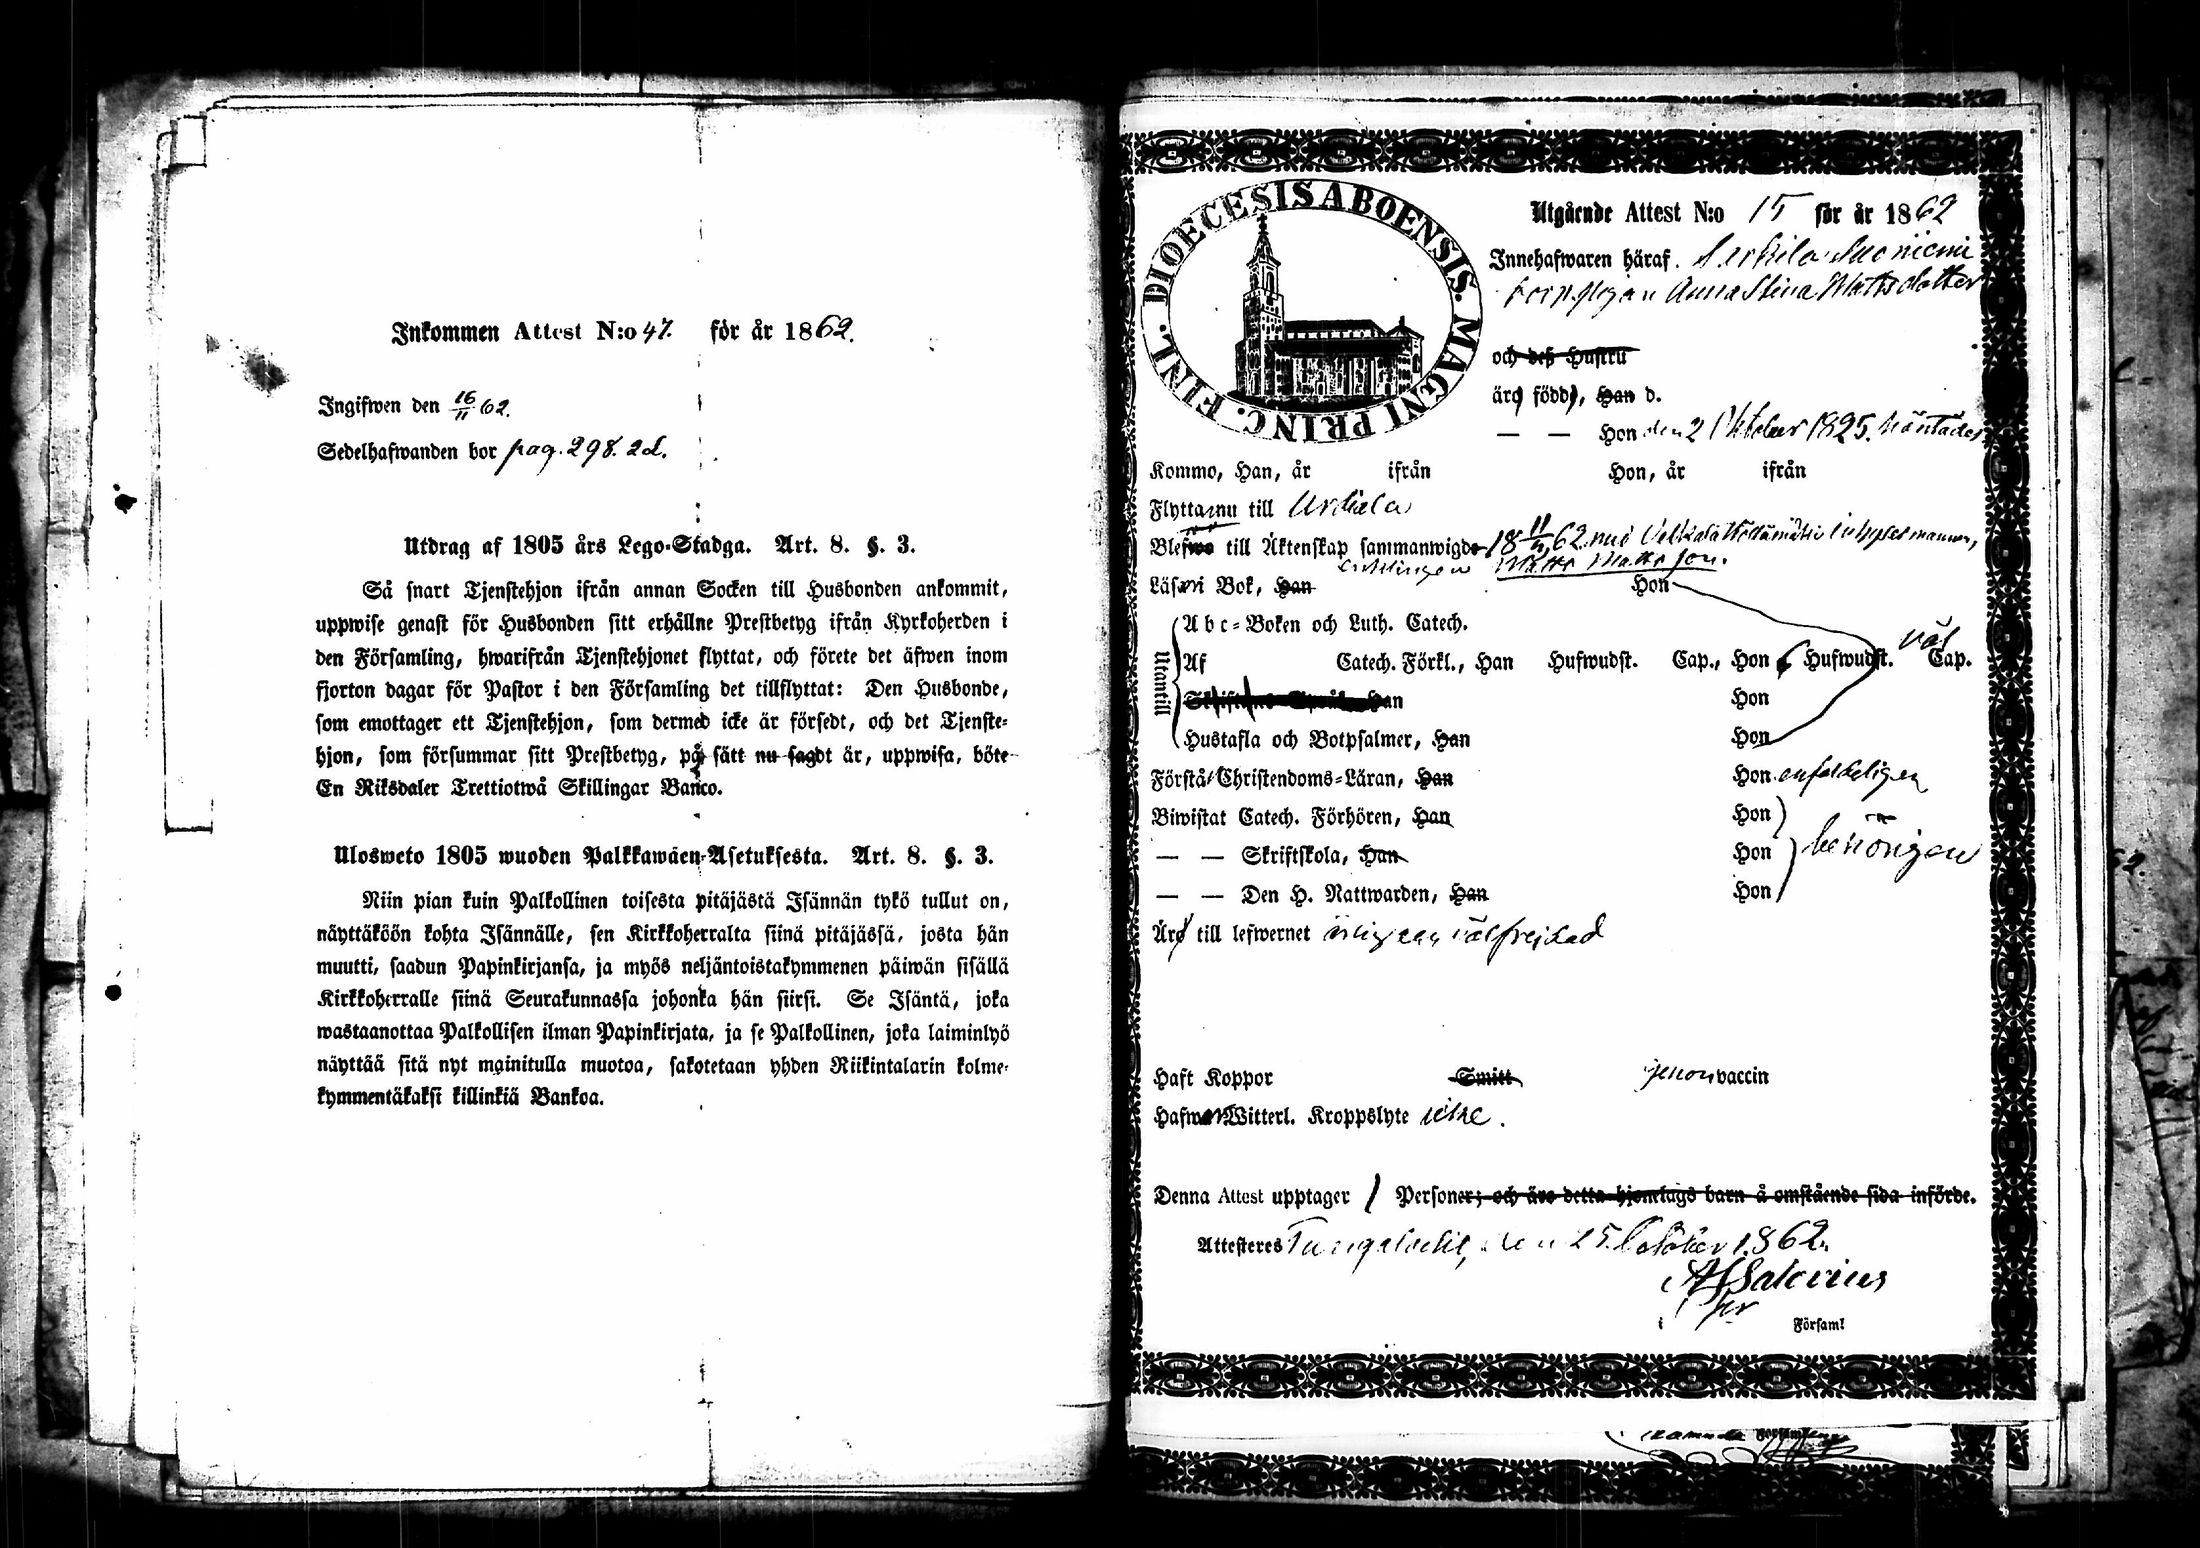 Inkommen Attest N:o 47. för år 1862.
Ingifwen den 16/11 62.
Sedelhafwanden bor pag. 298. 2d.
Utdrag af 1805 års Lego-Stadga. Art. 8. §. 3.
Så snart Tjenstehjon ifrån annan Socken till Husbonden ankommit,
uppwise genast för Husbonden sitt erhållne Prestbetyg ifrån Kyrkoherden i
den Församling, hwarifrån Tjenstehjonet flyttat, och förete det äfwen inom
fjorton dagar för Pastor i den Församling det tillflyttat: Den Husbonde,
som emottager ett Tjenstehjon, som dermed icke är försedt, och det Tjenste-
hjon, som försummar sitt Prestbetyg, på sätt nu sagdt är, uppwisa, böte
En Riksdaler Trettiotwå Skillingar Banco.
Ulosweto 1805 wuoden Palkkawäen-Asetuksesta. Art. 8. §. 3.
Niin pian kuin Palkollinen toisesta pitäjästä Isännän tykö tullut on,
näyttäköön kohta Isännälle, sen Kirkkoherralta siinä pitäjässä, josta hän
muutti, saadun Papinkirjansa, ja myös neljäntoistakymmenen päiwän sisällä
Kirkkoherralle siinä Seurakunnassa johonka hän siirsi. Se Isäntä, joka
wastaanottaa Palkollisen ilman Papinkirjata, ja se Palkollinen, joka laiminlyö
näyttää sitä nyt mainitulla muotoa, sakotetaan yhden Riikintalarin kolme-
kymmentäkaksi killinkiä Bankoa.
DIOECESIS ABOENSIS. MAGNI PRINC. FINL.
Utgående Attest N:o 15 för år 1862
Innehafwaren häraf
Anna Stina Mattsdotter
och deß Hustru
äro födde, Han d.
— — Hon den 2 Oktober 1825.
Kommo, Han, år ifrån Hon, år ifrån
Flytta nu till Urdiala
Blefwo till Äktenskap sammanwigde 18 11/4 62 med
Matts Matts son.
Läsa i Bok, Han Hon
Utantill
Abc-Boken och Luth. Catech.
Af Catech. Förkl., Han Hufwudst. Cap., Hon 6 Hufwudst. Cap.
väl
Han Hon
Hustafla och Botpsalmer, Han Hon
Förstå Christendoms-Läran, Han Hon enfaldeligen
Biwistat Catech. Förhören, Han Hon
— — Skriftskola, Han Hon behörigen
— — Den H. Nattwarden, Han Hon
Äro till lefwernet välfrejdad
Haft Koppor Smitt genom vaccin
Hafwa Witterl. Kroppslyte icke.
Denna Attest upptager 1 Personer; och äro detta hjonelags barn å omstående sida införde.
Attesteras den 25 October 1862.
i Församl